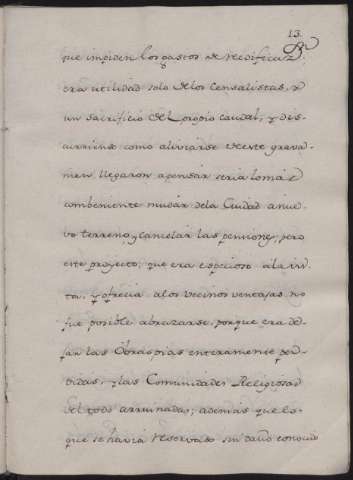 13.
que impiden los gastos de reedificar:
era utilidad solo delos Censalistas, y
un sacrificio del propio caudal, y dis-
curriendo como aliviarse deeste grava-
men llegaron apensar seria lo mas
combeniente mudar dela Ciudad anue-
vo terreno, y cancelar las penciones, pero
este proyecto, que era especioso ala vis-
ta, y ofrecia alos vecinos ventajas no
fue posible abrazarse, porque era de-
jar las Obras pias enteramente per-
didas, y las Comunidades Religiosas
del todo arruinadas; además que lo
que se havia reservado sin daño conocido